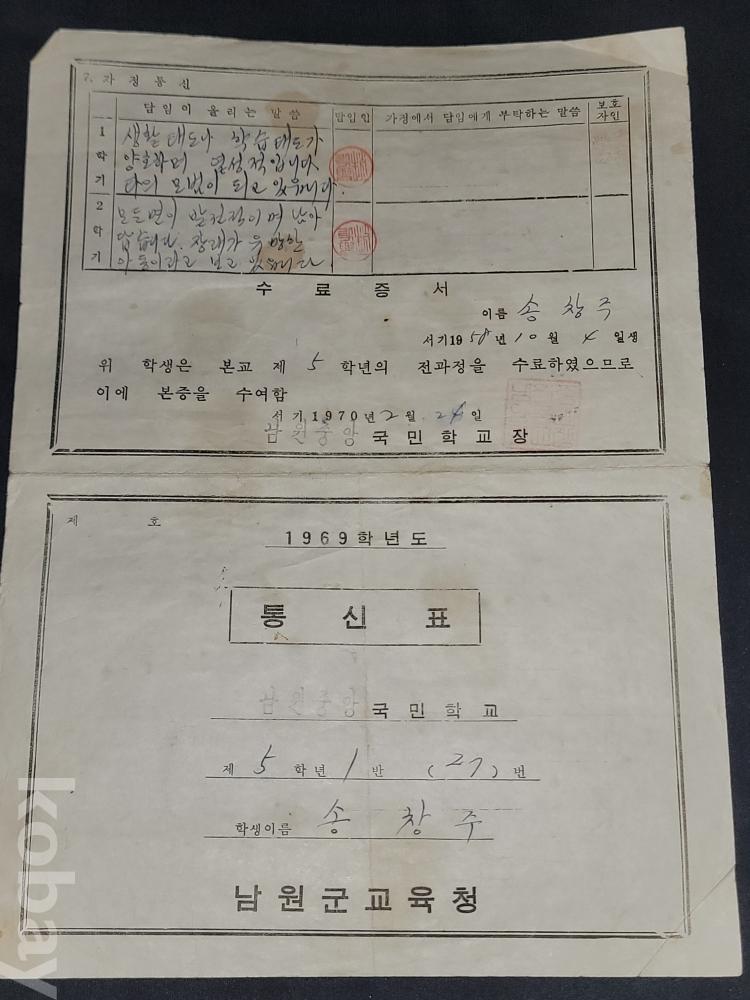 7. 가정통신
담임이 올리는 말씀 담임인 가정에서 담임에게 부탁하는 말씀 보호자인
1학기
생활태도나 학습태도가
양호하며 열성적입니다
타의 모범이 되고 있읍니다.
2학기
모든면이 발전적이며
장래가 유망한
아동이라고 보고 있읍니다
수료증서
이름 송창주
서기1958년 10월 4일생
위 학생은 본교 제 5 학년의 전과정을 수료하였으므로
이에 본증을 수여함
서기1970년 2월 24일
남원중앙국민학교장
제 호
1969학년도
통신표
남원중앙국민학교
제 5 학년 1 반 (27) 번
학생이름 송창주
남원군교육청
kobay